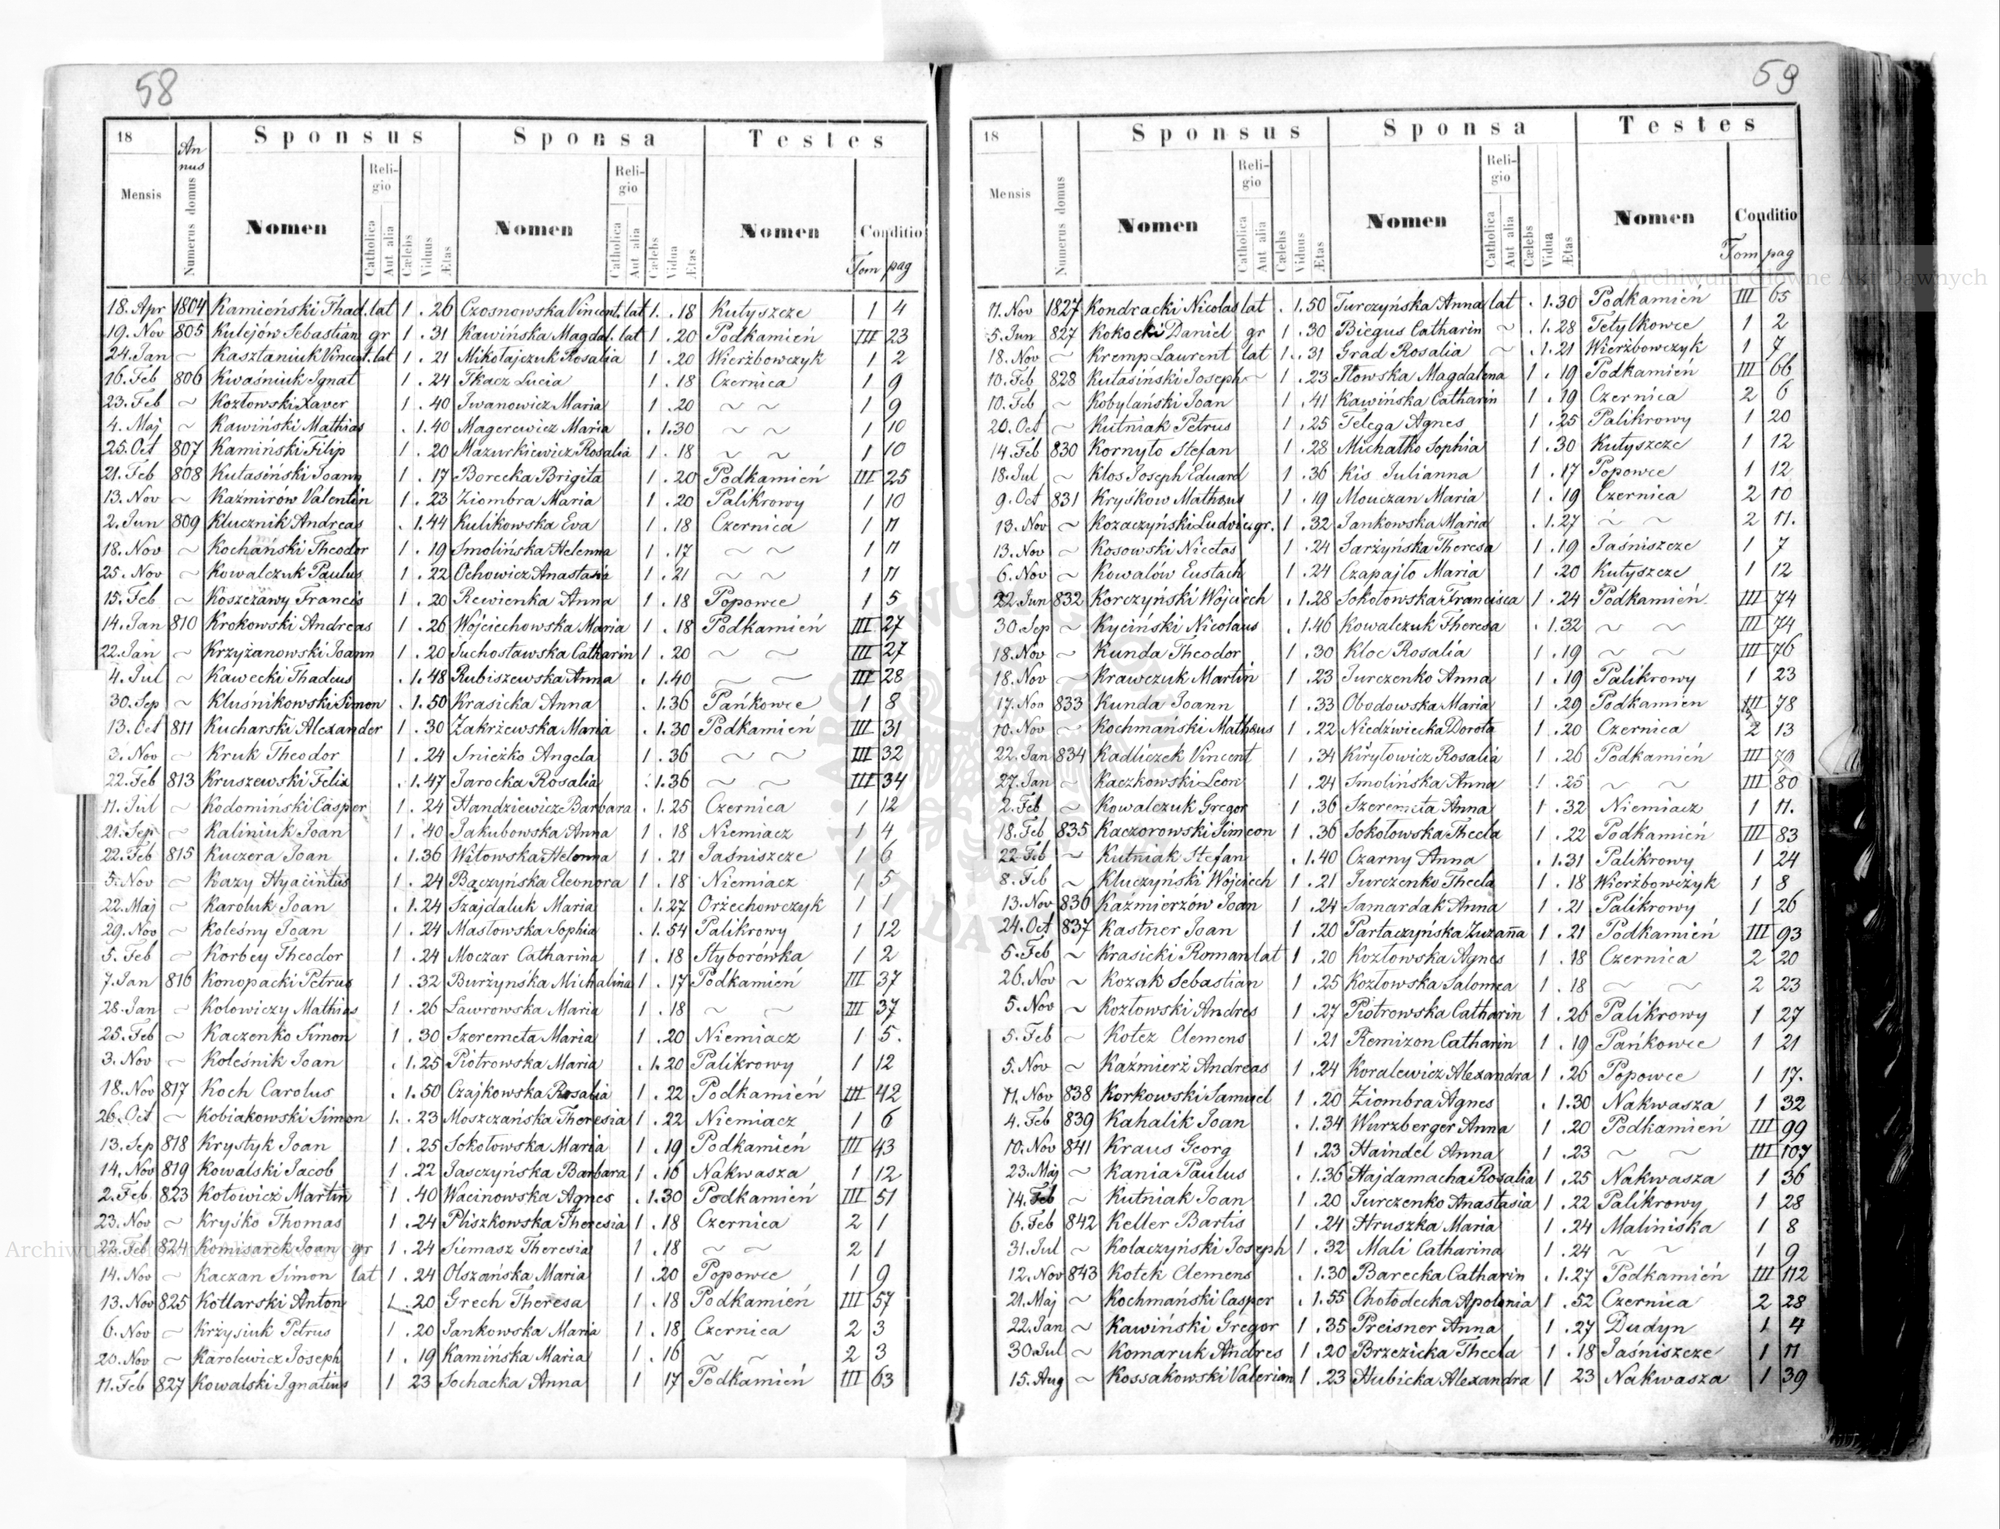 58
18 Annus Sponsus Sponsa Testes
Mensis Numerus domus Nomen Religio Catholica Aut alia Cælebs Viduus Ætas Nomen Religio Catholica Aut alia Cælebs Vidua Ætas Nomen Conditio
Tom pag
18. Apr 1804 Kamieński Thad. lat 1 . 26 Czosnowska Vincent. lat 1 . 18 Kutyszcze 1 4
19. Nov 805 Kulejów Sebastian gr 1 . 31 Kawińska Magdal. lat 1 . 20 Podkamień III 23
24. Jan ~ Kasztaniuk Vincent. lat 1 . 21 Mikołajczuk Rosalia 1 . 20 Wierżbowczyk 1 2
16. Feb 806 Kwaśniuk Ignat 1 . 24 Tkacz Lucia 1 . 18 Czernica 1 9
23. Feb ~ Kozłowski Xaver 1 . 40 Iwanowicz Maria 1 . 20 ~ ~ 1 9
4. Maj ~ Kawiński Mathias . 1. 40 Magerewicz Maria . 1. 30 ~ ~ 1 10
25. Oct 807 Kamiński Filip 1 . 20 Mazurkiewicz Rosalia 1 . 18 ~ ~ 1 10
21. Feb 808 Kutasiński Joann 1 . 17 Borecka Brigita 1 . 20 Podkamień III 25
13. Nov ~ Kaźmirów Valentin 1 . 23 Ziombra Maria 1 . 20 Palikrowy 1 10
2. Jun 809 Klucznik Andreas . 1. 44 Kulikowska Eva 1 . 18 Czernica 1 11
18. Nov ~ Kochański Theodor 1 . 19 Smolińska Helenna 1 . 17 ~ ~ 1 11
25. Nov ~ Kowalczuk Paulus 1 . 22 Ochowicz Anastasia 1 . 21 ~ ~ 1 11
15. Feb ~ Koszczawy Francis 1 . 20 Rewienka Anna 1 . 18 Popowce 1 5
14. Jan 810 Krokowski Andreas 1 . 26 Wójciechowska Maria 1 . 18 Podkamień III 27
22. Jan ~ Krzyżanowski Joann 1 . 20 Suchostawska Catharin 1 . 20 ~ ~ III 27
4. Jul ~ Kawecki Thadeus . 1. 48 Rubiszewska Anna . 1. 40 ~ ~ III 28
30. Sep ~ Kluśnikowski Simon . 1. 50 Krasicka Anna . 1. 36 Pańkowce 1 8
13. Oct 811 Kucharski Alexander 1 . 30 Zakrżewska Maria . 1. 30 Podkamień III 31
3. Nov ~ Kruk Theodor 1 . 24 Snieżko Angela 1 . 36 ~ ~ III 32
22. Feb 813 Kruszewski Felix . 1. 47 Jarocka Rosalia . 1. 36 ~ ~ III 34
11. Jul ~ Kodomiński Casper 1 . 24 Handziewicz Barbara . 1. 25 Czernica 1 12
21. Sep ~ Kaliniuk Joan 1 . 40 Jakubowska Anna 1 . 18 Niemiacz 1 4
22. Feb 815 Kuczera Joan . 1. 36 Witowska Helenna 1 . 21 Jaśniszcze 1 6
5. Nov ~ Kazy Hyacintus 1 . 24 Bączyńska Eleonora 1 . 18 Niemiacz 1 5
22. Maj ~ Karoluk Joan . 1. 24 Szajdaluk Maria . 1. 27 Orżechowczyk 1 1
29. Nov ~ Koleśny Joan 1 . 24 Masłowska Sophia . 1. 54 Palikrowy 1 12
5. Feb ~ Korbey Theodor 1 . 24 Moczar Catharina 1 . 18 Styborówka 1 2
7. Jan 816 Konopacki Petrus 1 . 32 Burżyńska Michalina 1 . 17 Podkamień III 37
28. Jan ~ Kołowiczy Mathias 1 . 26 Lawrowska Maria 1 . 18 ~ ~ III 37
25. Feb ~ Kaczenko Simon 1 . 30 Szeremeta Maria 1 . 20 Niemiacz 1 5.
3. Nov ~ Koleśnik Joan . 1. 25 Piotrowska Maria . 1. 20 Palikrowy 1 12
18. Nov 817 Koch Carolus . 1. 50 Czajkowska Rosalia 1 . 22 Podkamień III 42
26. Oct ~ Kobiakowski Simon 1. . 23 Moszczańska Theresia 1 . 22 Niemiacz 1 6
13. Sep 818 Krystyk Joan 1 . 25 Sokołowska Maria 1 . 19 Podkamień III 43
14. Nov 819 Kowalski Jacob 1 . 22 Jasczyńska Barbara 1 . 16 Nakwasza 1 12
2. Feb 823 Kołowicz Martin 1 . 40 Wacinowska Agnes . 1. 30 Podkamień III 51
23. Nov ~ Kryśko Thomas 1 . 24 Pliszkowska Theresia 1 . 18 Czernica 2 1
22. Feb 824 Komisarek Joan gr 1 . 24 Siemasz Theresia 1 . 18 ~ ~ 2 1
14. Nov ~ Kaczan Simon lat 1 . 24 Olszańska Maria 1 . 20 Popowce 1 9
13. Nov 825 Kotlarski Anton 1 . 20 Grech Theresa 1 . 18 Podkamień III 57
6. Nov ~ Krżysiuk Petrus 1 . 20 Jankowska Maria 1 . 18 Czernica 2 3
20. Nov ~ Karolewicz Joseph 1 . 19 Kamińska Maria 1 . 16 ~ ~ 2 3
11. Feb 827 Kowalski Ignatius 1 23 Sochacka Anna 1 17 Podkamień III 63
59
18 Sponsus Sponsa Testes
Mensis Numerus domus Nomen Religio Catholica Aut alia Cælebs Viduus Ætas Nomen Religio Catholica Aut alia Cælebs Vidua Ætas Nomen Conditio
Tom pag
11. Nov 1827 Kondracki Nicolas lat . 1. 50 Turczyńska Anna lat . 1. 30 Podkamień III 65
5. Jun 827 Kokocki Daniel gr 1 . 30 Biegus Catharin ~ . 1. 28 Tetylkowce 1 2
18. Nov ~ Kremp Laurent lat 1 . 31 Grad Rosalia ~ . 1. 21 Wierżbowczyk 1 7
10. Feb 828 Kutasiński Joseph ~ 1 . 23 Iłowska Magdalena 1 . 19 Podkamień III 66
10. Feb ~ Kobylański Joan 1 . 41 Kawińska Catharin 1 . 19 Czernica 2 6
20. Oct ~ Kutniak Petrus 1 . 25 Telega Agnes 1 . 25 Palikrowy 1 20
14. Feb 830 Kornyło Stefan 1 . 28 Michałko Sophia . 1. 30 Kutyszcze 1 12
18. Jul ~ Kłos Joseph Eduard 1 . 36 Kis Julianna 1 . 17 Popowce 1 12
9. Oct 831 Kryśkow Matheus 1 . 19 Mouczan Maria 1 . 19 Czernica 2 10
13. Nov ~ Kozaczyński Ludvic gr. 1 . 32 Jankowska Maria . 1. 27 ~ ~ 2 11.
13. Nov ~ Kosowski Nicetas 1 . 24 Sarżyńska Theresa 1 . 19 Jaśniszcze 1 7
6. Nov ~ Kowalów Eustach 1 . 24 Czapajło Maria 1 . 20 Kutyszcze 1 12
22. Jun 832 Korczyński Wójciech . 1. 28 Sokołowska Francisca 1 . 24 Podkamień III 74
30 Sep ~ Kyciński Nicolaus . 1. 46 Kowalczuk Theresa . 1. 32 ~ ~ III 74
18. Nov ~ Kunda Theodor 1 . 30 Kloc Rosalia 1 . 19 ~ ~ III 76
18. Nov ~ Krawczuk Martin 1 . 23 Jurczenko Anna 1 . 19 Palikrowy 1 23
17. Nov 833 Kunda Joann 1 . 33 Obodowska Maria 1 . 29 Podkamień III 78
10. Nov ~ Kochmański Matheus 1 . 22 Niedźwiecka Dorota 1 . 20 Czernica 2 13
22. Jan 834 Kadliczek Vincent 1 . 34 Kiryłowicz Rosalia 1 . 26 Podkamień III 79
27. Jan ~ Kaczkowski Leon 1 . 24 Smolińska Anna 1 . 25 ~ ~ III 80
2. Feb ~ Kowalczuk Gregor 1 . 36 Szeremeta Anna 1 . 32 Niemiacz 1 11.
18. Feb 835 Kaczorowski Simeon 1 . 36 Sokołowska Thecla 1 . 22 Podkamień III 83
22 Feb ~ Kutniak Stefan . 1. 40 Czarny Anna . 1. 31 Palikrowy 1 24
8. Feb ~ Kluczyński Wójciech 1 . 21 Jurczenko Thecla 1 . 18 Wierżbowczyk 1 8
13. Nov 836 Kaźmierzów Joan 1 . 24 Samardak Anna 1 . 21 Palikrowy 1 26
24. Oct 837 Kastner Joan 1 . 20 Partaczyńska Zuzanna 1 . 21 Podkamień III 93
5. Feb ~ Krasicki Roman lat 1 . 20 Kozłowska Agnes 1 . 18 Czernica 2 20
26. Nov ~ Kozak Sebastian 1 . 25 Kozłowska Salomea 1 . 18 ~ ~ 2 23
5. Nov ~ Kozłowski Andres 1 . 27 Piotrowska Catharin 1 . 26 Palikrowy 1 27
5. Feb ~ Kotez Clemens 1 . 21 Remizon Catharin 1 . 19 Pańkowce 1 21
5. Nov ~ Kaźmierż Andreas 1 . 24 Koralewicz Alexandra 1 . 26 Popowce 1 17.
11. Nov 838 Korkowski Samuel 1 . 20 Ziombra Agnes . 1. 30 Nakwasza 1 32
4. Feb 839 Kahalik Joan . 1. 34 Wurzberger Anna 1 . 20 Podkamień III 99
10. Nov 841 Kraus Georg 1 . 23 Haindel Anna 1 . 23 ~ ~ III 107
23. Maj ~ Kania Paulus . 1. 36 Hajdamacha Rosalia 1 . 25 Nakwasza 1 36
14. Feb ~ Kutniak Joan 1 . 20 Jurczenko Anastasia 1 . 22 Palikrowy 1 28
6. Feb 842 Keller Bartis 1 . 24 Hruszka Maria 1 . 24 Maliniska 1 8
31. Jul ~ Kolaczyński Joseph 1 . 32 Mali Catharina 1 . 24 ~ ~ 1 9
12. Nov 843 Kotek Clemens . 1. 30 Barecka Catharin . 1. 27 Podkamień III 112
21. Maj ~ Kochmański Casper . 1. 55 Chołodecka Apolonia 1 . 52 Czernica 2 28
22. Jan ~ Kawiński Gregor 1 . 35 Preisner Anna 1 . 27 Dudyn 1 4
30. Jul ~ Komaruk Andres 1 . 20 Brzezicka Thecla 1 . 18 Jaśniszcze 1 11
15. Aug ~ Kossakowski Valerian 1 . 23 Hubicka Alexandra 1 23 Nakwasza 1 39
Archiwum Główne Akt Dawnych